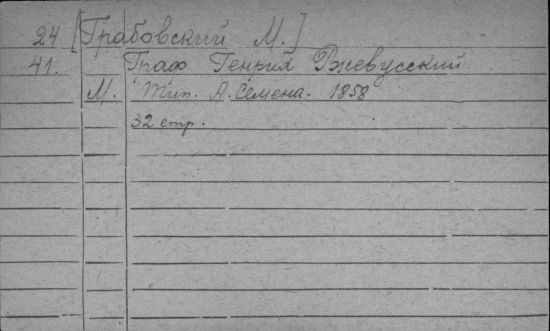 24 [Грабовский М.]
41. Граф Генрих Ржевусский.
М. Тип. А. Семена. 1858
32 стр.